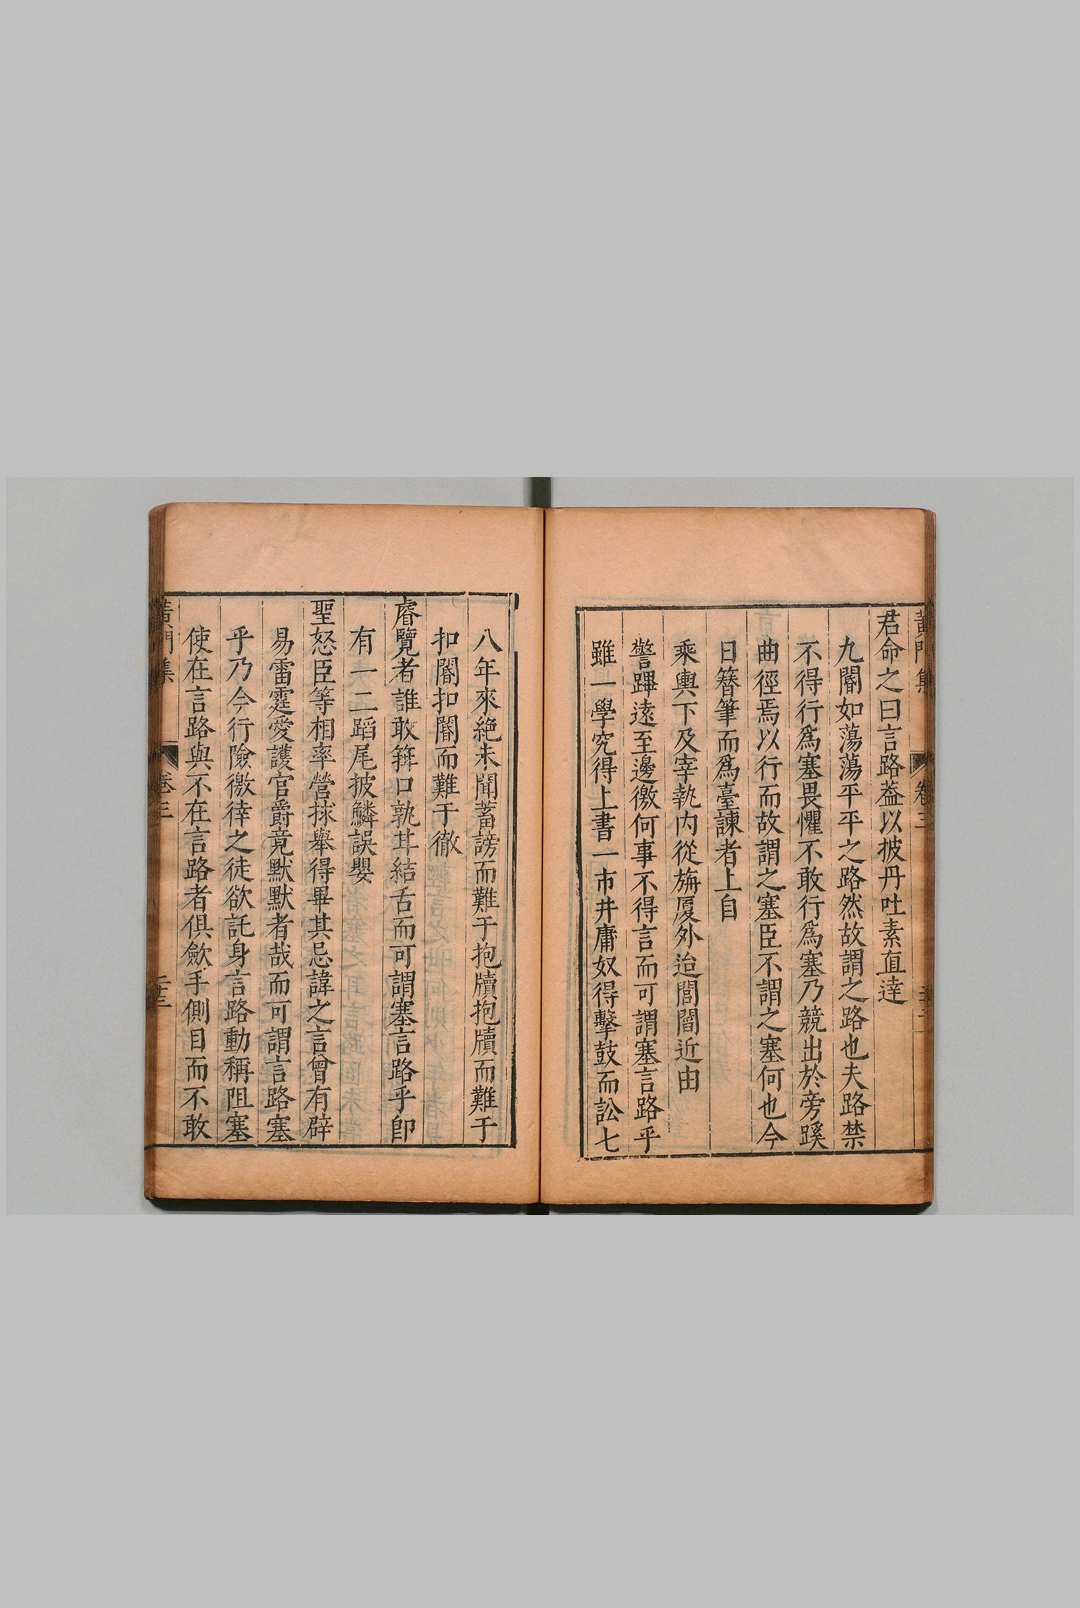 君命之曰言路葢以披丹吐素直達
九閽如蕩蕩平平之路然故謂之路也夫路禁
不得行爲塞畏懼不敢行爲塞乃競出於旁蹊
曲徑焉以行而故謂之塞臣不謂之塞何也今
日簪筆而爲臺諫者上自
乘輿下及宰執內從旃厦外迨閭閻近由
警蹕遠至邊徼何事不得言而可謂塞言路乎
雖一學究得上書一市井庸奴得擊鼓而訟七
八年來絕未聞蓄謗而難于抱牘抱牘而難于
扣閽扣閽而難于徹
睿覽者誰敢箝口孰甘結舌而可謂塞言路乎卽
有一二蹈尾披鱗誤嬰
聖怒臣等相率營捄舉得畢其忌諱之言曾有辟
易雷霆愛護官爵竟默默者哉而可謂言路塞
乎乃今行險徼倖之徒欲託身言路動稱阻塞
使在言路與不在言路者俱歛手側目而不敢
黃門集
卷三